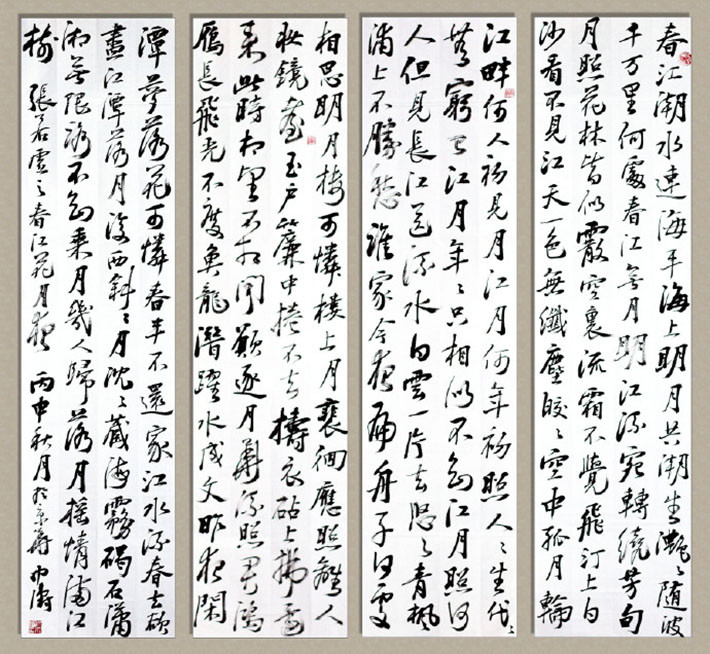 春江潮水連海平海上明月共潮生灔々随波
千万里何處春江無月明江流宛轉繞芳甸
月照花林皆似霰空裏流霜不覺飛汀上白
沙看不見江天一色無纖塵皎々空中孤月輪
江畔何人初見月江月何年初照人々生代々
無窮已江月年々只相似不知江月照何
人但見長江送流水白雲一片去悠々青楓
浦上不勝愁誰家今夜扁舟子何處
相思明月樓可憐樓上月裴徊應照離人
妝鏡臺玉戶簾中捲不去擣衣砧上拂還
來此時相望不相聞願逐月華流照君鴻
鴈長飛光不度魚龍潛躍水成文昨夜閑
潭夢落花可憐春半不還家江水流春去欲
盡江潭落月復西斜々月沉々藏海霧碣石瀟
湘無限路不知乘月幾人歸落月摇情滿江
樹 張若虛之春江花月夜 丙申秋月於京華